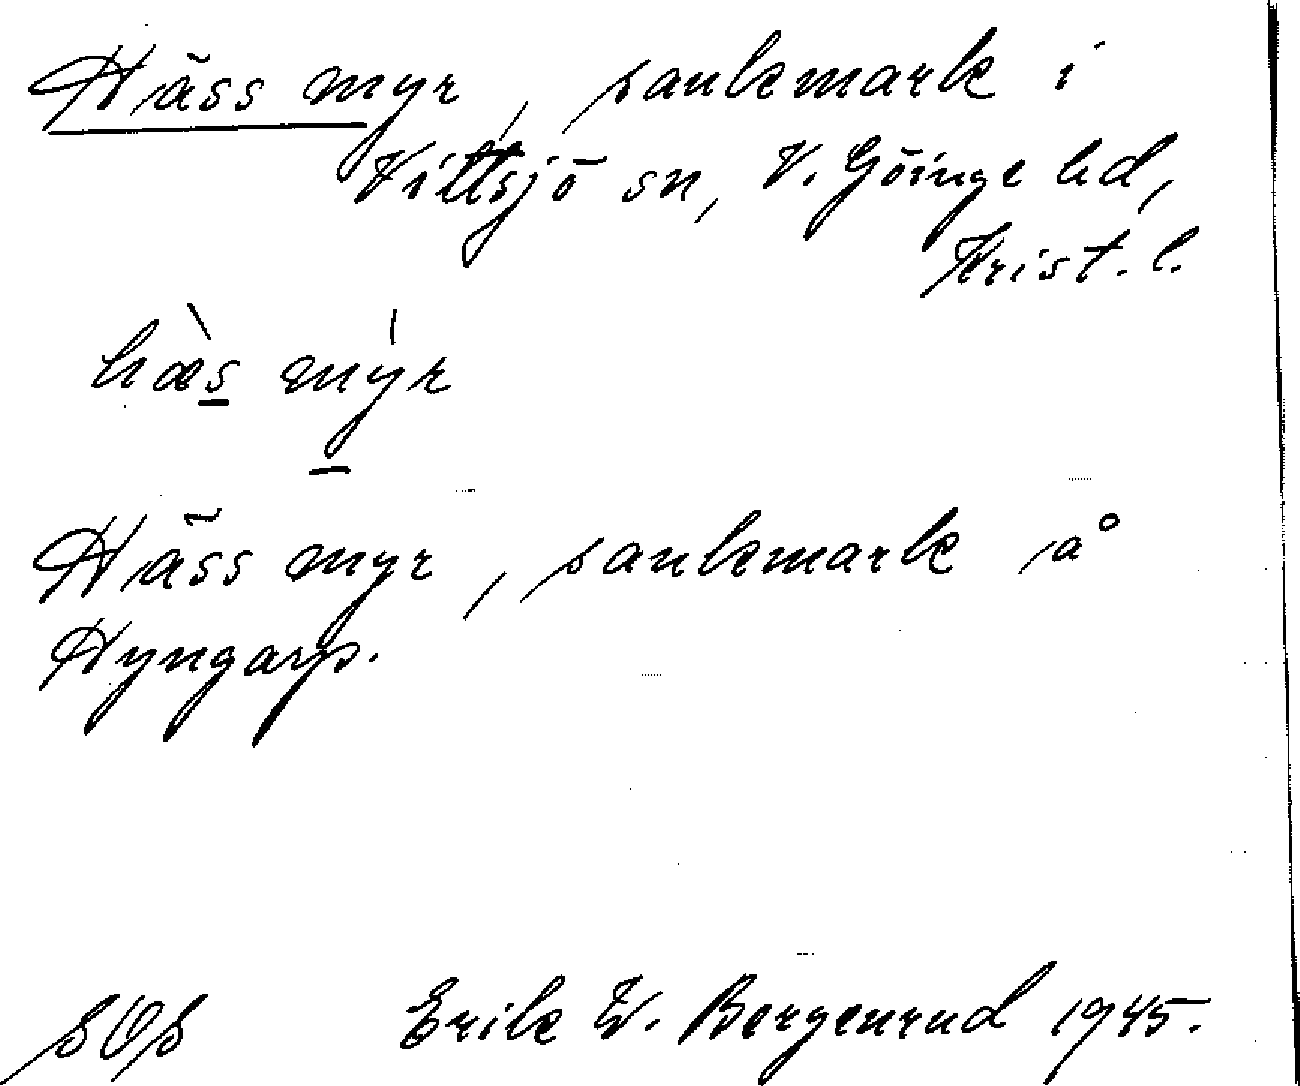 Häss myr, sankmark i
Vittsjö sn, V. Göinge hd,
Krist. l.
hæ̀s mýr
Häss myr, sankmark på
Hyngarp.
SOS Erik W. Bergenrud 1945.